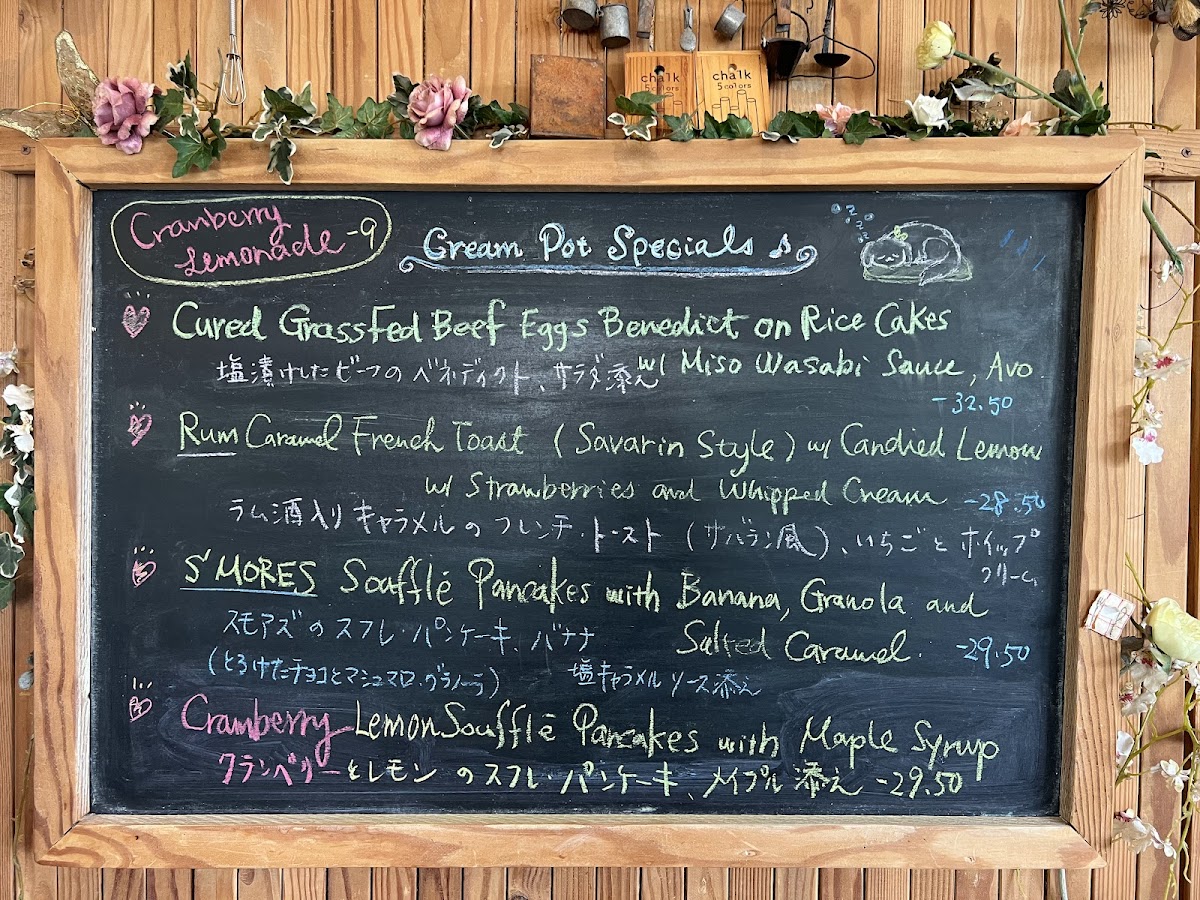 chalk
5 colors
chalk
5 colors
Cranberry
Lemonade -9
Cream Pot Specials ♪
z z z z z
Cured Grassfed Beef Eggs Benedict on Rice Cakes
塩漬けしたビーフのベネディクト、サラダ添え w/ Miso Wasabi Sauce, Avo.
-32.50
Rum Caramel French Toast (Savarin Style) w/ Candied Lemon
w/ Strawberries and Whipped Cream -28.50
ラム酒入りキャラメルのフレンチ・トースト (サバラン風)、いちごとホイップ
クリーム
S'MORES Soufflé Pancakes with Banana, Granola and
スモアズのスフレ・パンケーキ、バナナ Salted Caramel. -29.50
(とろけたチョコとマシュマロ、グラノーラ) 塩キャラメルソース添え
Cranberry Lemon Soufflé Pancakes with Maple Syrup
クランベリーとレモンのスフレ・パンケーキ、メイプル添え -29.50